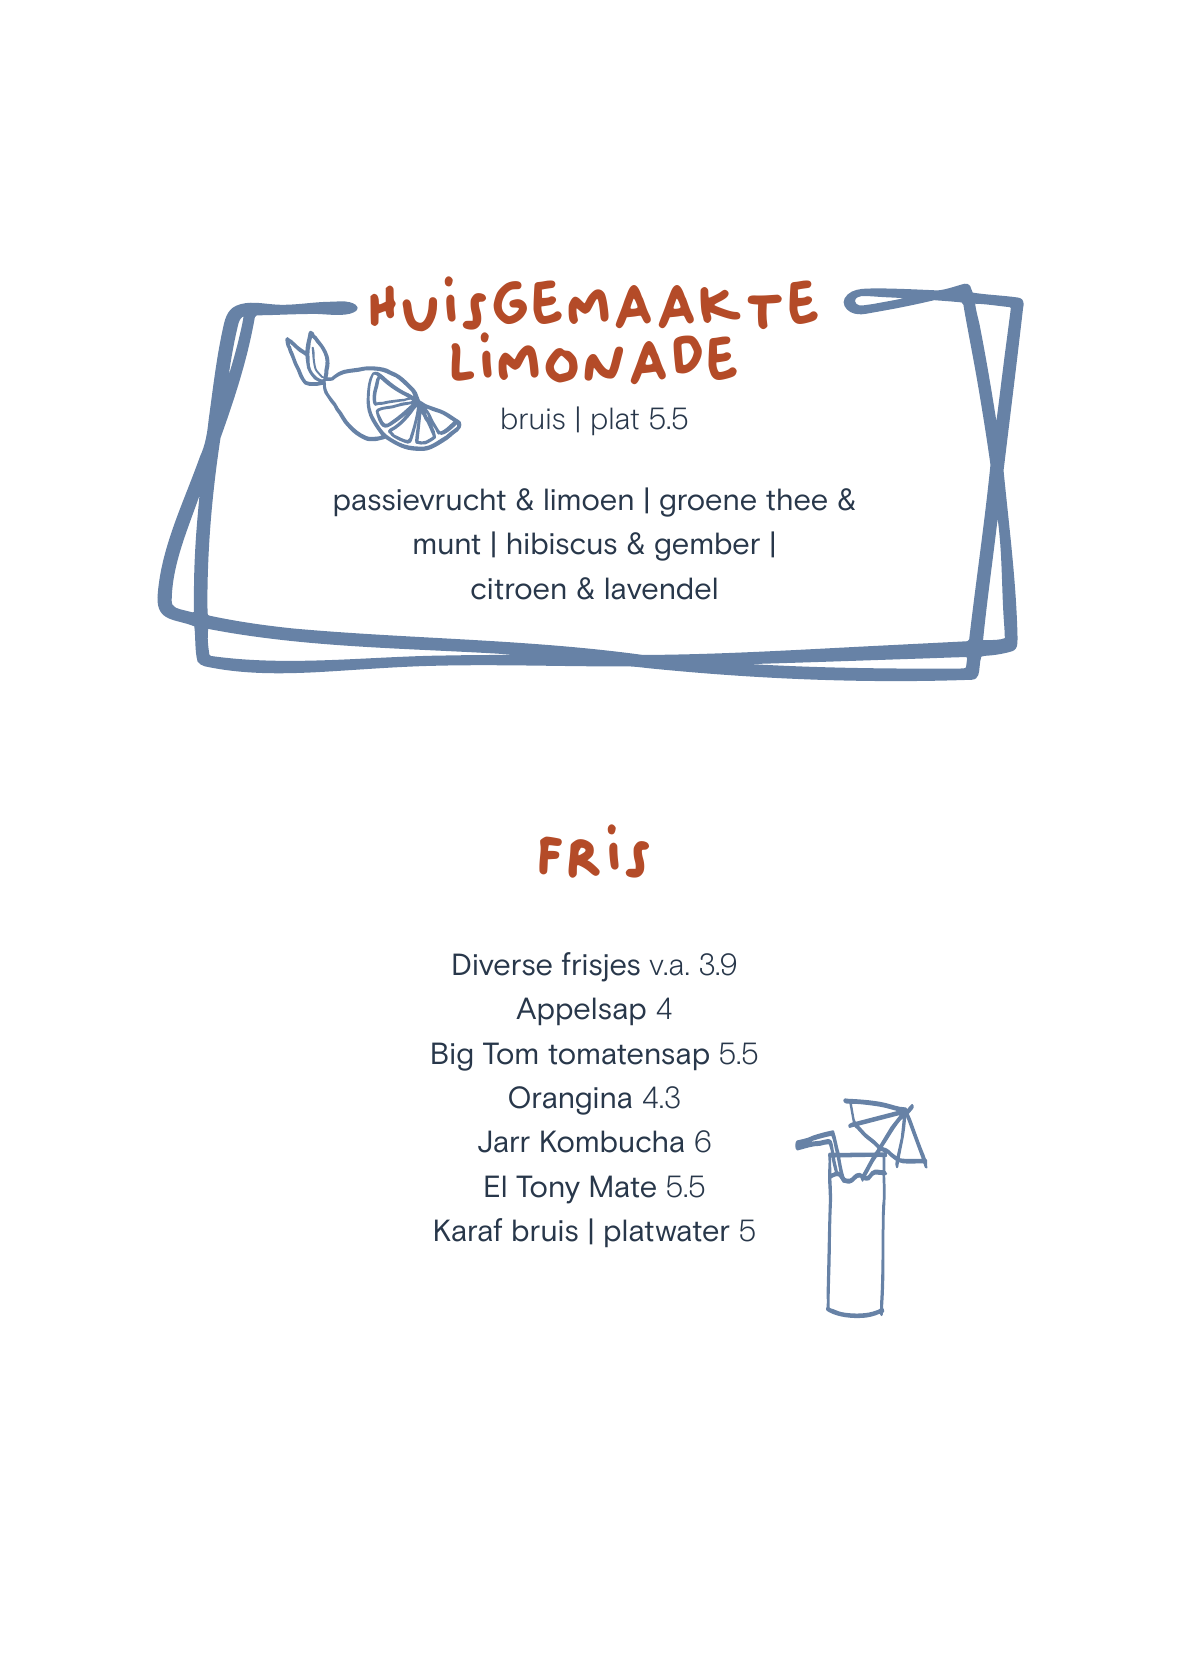 HUiSGEMAAKTE
LiMONADE
bruis | plat 5.5
passievrucht & limoen | groene thee &
munt | hibiscus & gember |
citroen & lavendel
FRiS
Diverse frisjes v.a. 3.9
Appelsap 4
Big Tom tomatensap 5.5
Orangina 4.3
Jarr Kombucha 6
El Tony Mate 5.5
Karaf bruis | platwater 5